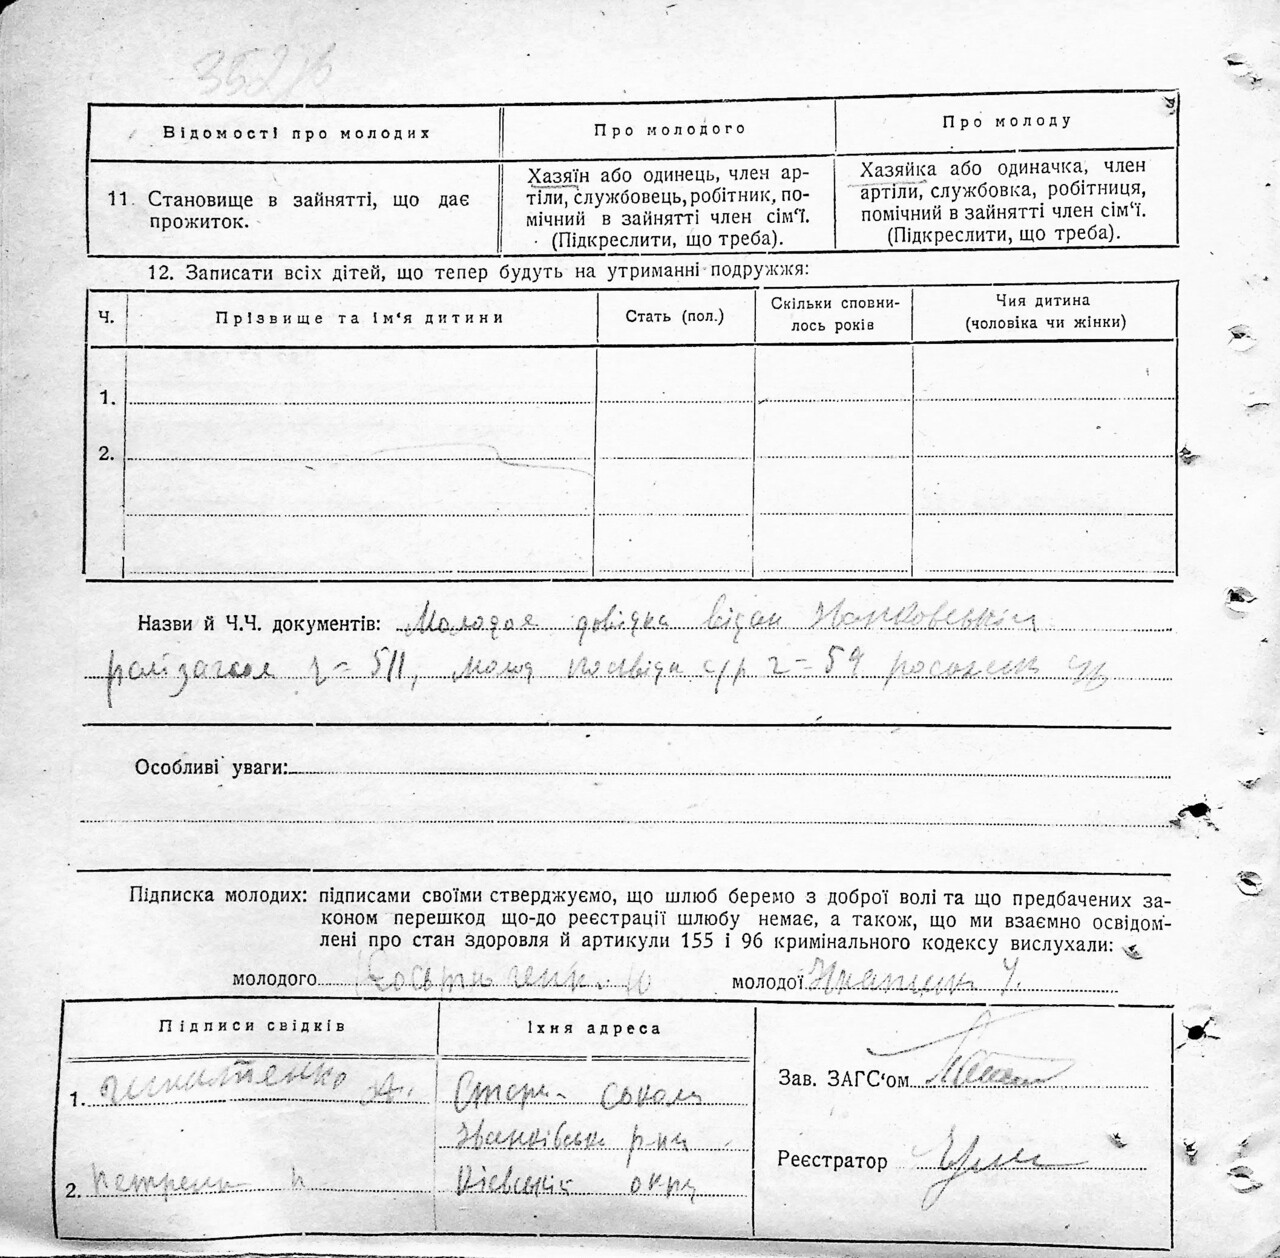 352/в
Відомості про молодих
Про молодого
Про молоду
11. Становище в зайнятті, що дає прожиток.
Хазяїн або одинець, член ар-
тіли, службовець, робітник, по-
мічний в зайнятті член сім‘ї.
(Підкреслити, що треба).
Хазяйка або одиначка, член
артіли, службовка, робітниця,
помічний в зайнятті член сім‘ї.
(Підкреслити, що треба).
12. Записати всіх дітей, що тепер будуть на утриманні подружжя:
Ч.
Прізвище та ім‘я дитини
Стать (пол.)
Скільки сповни-
лось років
Чия дитина
(чоловіка чи жінки)
1.
2.
Назви й Ч.Ч. документів: Молодоя довідка видан
ч=511, ч=59
Особливі уваги:
Підписка молодих: підписами своїми стверджуємо, що шлюб беремо з доброї волі та що предбачених за-
коном перешкод що-до реєстрації шлюбу немає, а також, що ми взаємно освідом-
лені про стан здоровля й артикули 155 і 96 кримінального кодексу вислухали:
молодого молодої
Підписи свідків
Їхня адреса
1. Ігнатенко
2. Петренко
Стари Сокол
р-на
Київської окр
Зав. ЗАГС‘ом
Реєстратор